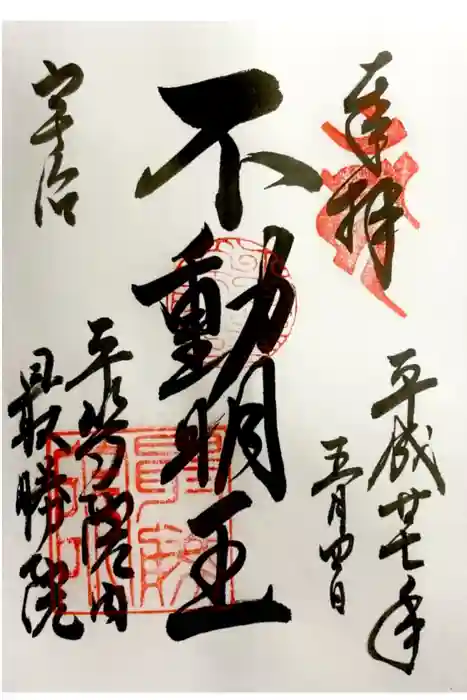 奉拝
平成廿七年
五月四日
不動明王
宇治
平等院内
最勝院